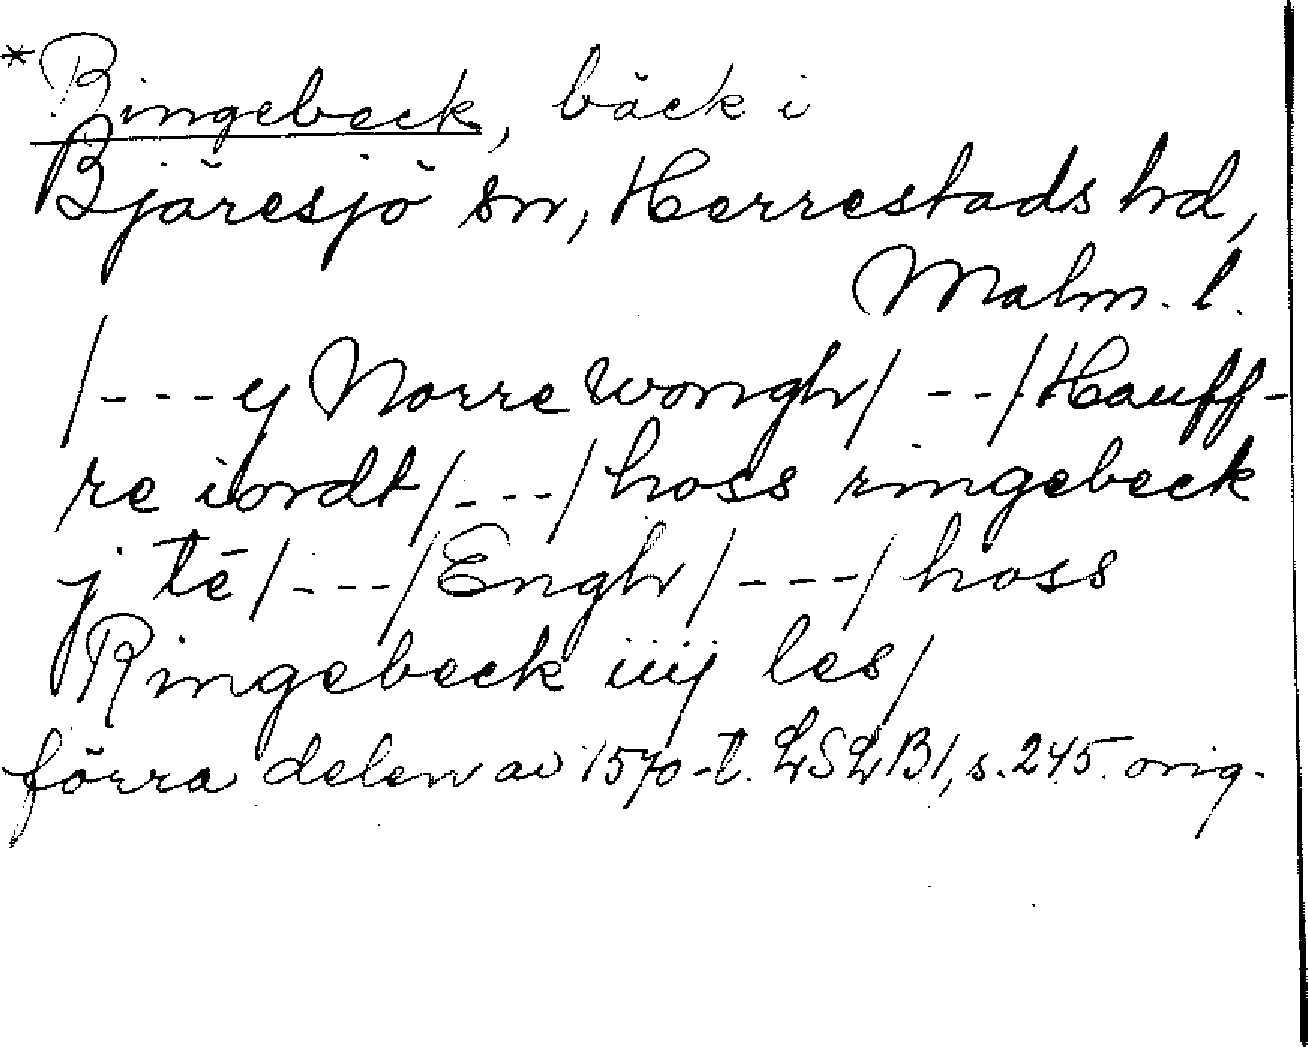 *Ringebeck, bäck i
Bjäresjö sn, Herrestads hd,
Malm. l.
/---y Norre wongh/ --/Hauff-
re iordt/---/hoss ringebeck
j tē/---/Engh/---/hoss
Ringebeck iiij les/
förra delen av 1570-t. LSLB1, s. 245. orig.